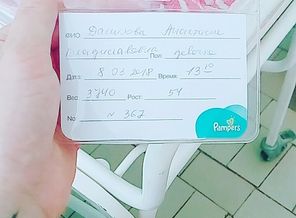 ФИО Данилова Анастасия
Владиславовна Пол девочка
Дата 8 03 2018 Время: 13 10
Вес 3740 Рост: 51
No N 367
Pampers